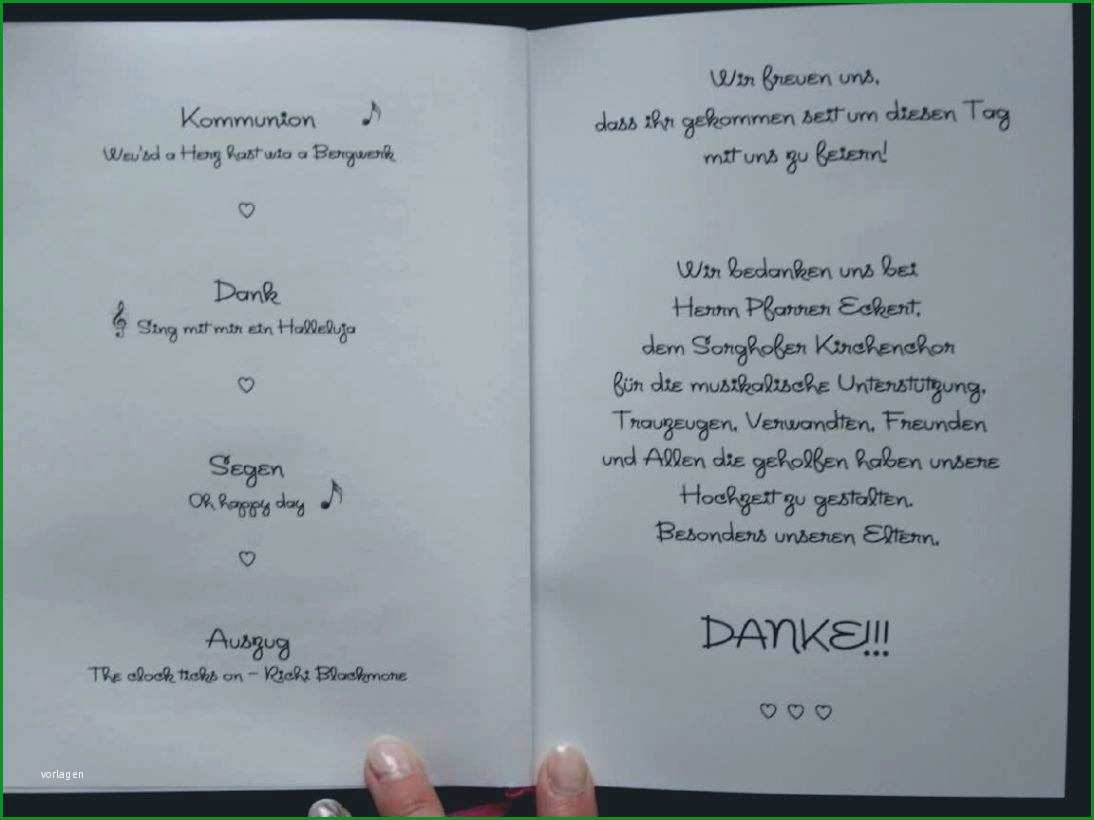 Kommunion
Weu'sd a Herz hast wia a Bergwerk
Dank
Sing mit mir ein Halleluja
Segen
Oh happy day
Auszug
The clock ticks on - Richi Blackmore
Wir freuen uns,
dass ihr gekommen seit um diesen Tag
mit uns zu feiern!
Wir bedanken uns bei
Herrn Pfarrer Eckert,
dem Sorghofer Kirchenchor
für die musikalische Unterstützung,
Trauzeugen, Verwandten, Freunden
und Allen die geholfen haben unsere
Hochzeit zu gestalten.
Besonders unseren Eltern.
DANKE!!!
vorlagen